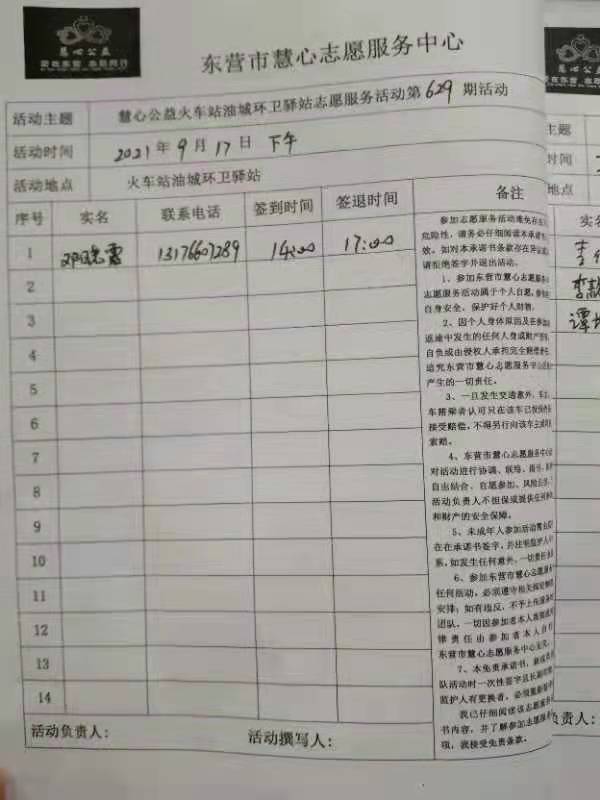 慧心公益
爱在东营 志愿同行
东营市慧心志愿服务中心
活动主题 慧心公益火车站油城环卫驿站志愿服务活动第629期活动
活动时间 2021年9月17日 下午
活动地点 火车站油城环卫驿站
序号 实名 联系电话 签到时间 签退时间 备注
1 邓晓霞 13176607289 14:00 17:00
2
3
4
5
6
7
8
9
10
11
12
13
14
参加志愿服务活动难免存在
危险性，请务必仔细阅读本承诺书
效。如对本承诺书条款存在异议
请拒绝签字并退出活动。
1、参加东营市慧心志愿服务
志愿服务活动属于个人自愿，
自身安全、保护好个人财物。
2、因个人身体原因及在参加
返途中发生的任何人身或财产
自负或由侵权人承担完全赔偿
追究东营市慧心志愿服务中心
产生的一切责任。
3、一旦发生交通意外，车
车搭乘者认可只在该车已投保
接受赔偿，不得另行向该车主或
索赔。
4、东营市慧心志愿服务中心
对活动进行协调、联络、指引，
自由结合、自愿参加、风险自
活动负责人不担保或提供任何
和财产的安全保障。
5、未成年人参加活动需
在在承诺书签字，并注明监护人
系，如发生任何意外，一切责任
6、参加东营市慧心志愿服务
任何活动，必须遵守相关规
安排；如有违反，不予上
团队，一切因参加者本人
律责任由参加者本人自行
东营市慧心志愿服务中心无关。
7、本免责承诺书，
队活动时一次性签字且长期
监护人有更换者，必须重新
我已仔细阅读该志愿服务
书内容，并了解参加志愿服务
项，我接受免责条款。
活动负责人： 活动撰写人：
慧心公益
在东营 志愿同行
主题
时间
地点
实名
李
李
谭
负责人：